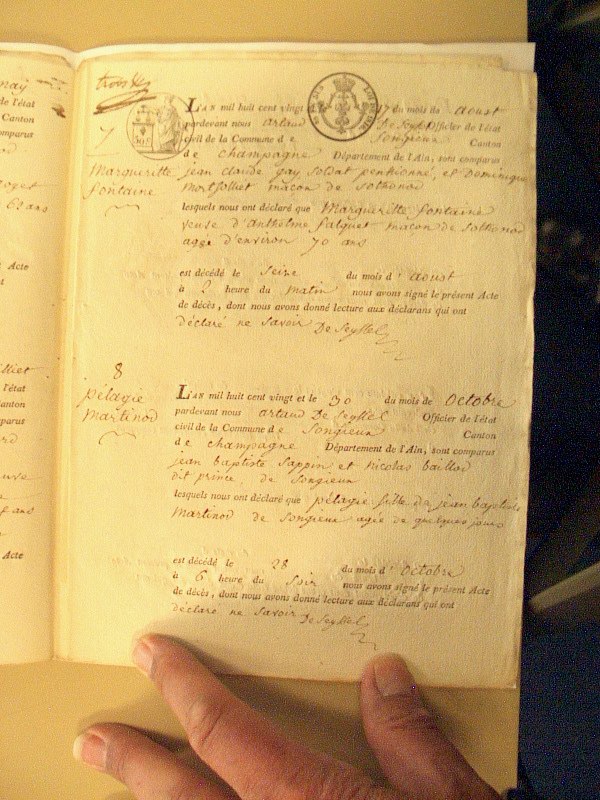 trois
7
Margueritte
fontaine
LIAN mil huit cent vingt 17 du mois de aoust
pardevant nous artaud De Seyssel Officier de l'état
civil de la Commune d e Songieux Canton
d e champagne Département de l'Ain, sont comparus
jean claude gay soldat pentionné, et Dominique
Montfolliet macon de Sothonod
lesquels nous ont déclaré que Margueritte fontaine
veuse d'anthelme falquet macon de Sothonod
agée d'environ 70 ans
est décédé le Seize du mois d' aoust
à 2 heure du matin nous avons signé le présent Acte
de décès, dont nous avons donné lecture aux déclarans qui ont
déclaré ne Savoir De Seyssel
8
pélagie
Martinod
LIAN mil huit cent vingt et le 30 du mois de Octobre
pardevant nous artaud De Seyssel Officier de l'état
civil de la Commune d e Songieux Canton
d e champagne Département de l'Ain, sont comparus
jean baptiste Sappin et nicolas baillod
dit prince, de Songieux
lesquels nous ont déclaré que pélagie fille de jean baptiste
Martinod de Songieux agée de quelques jours
est décédé le 28 du mois d' Octobre
à 6 heure du soir nous avons signé le présent Acte
de décès, dont nous avons donné lecture aux déclarans qui ont
déclaré ne Savoir De Seyssel